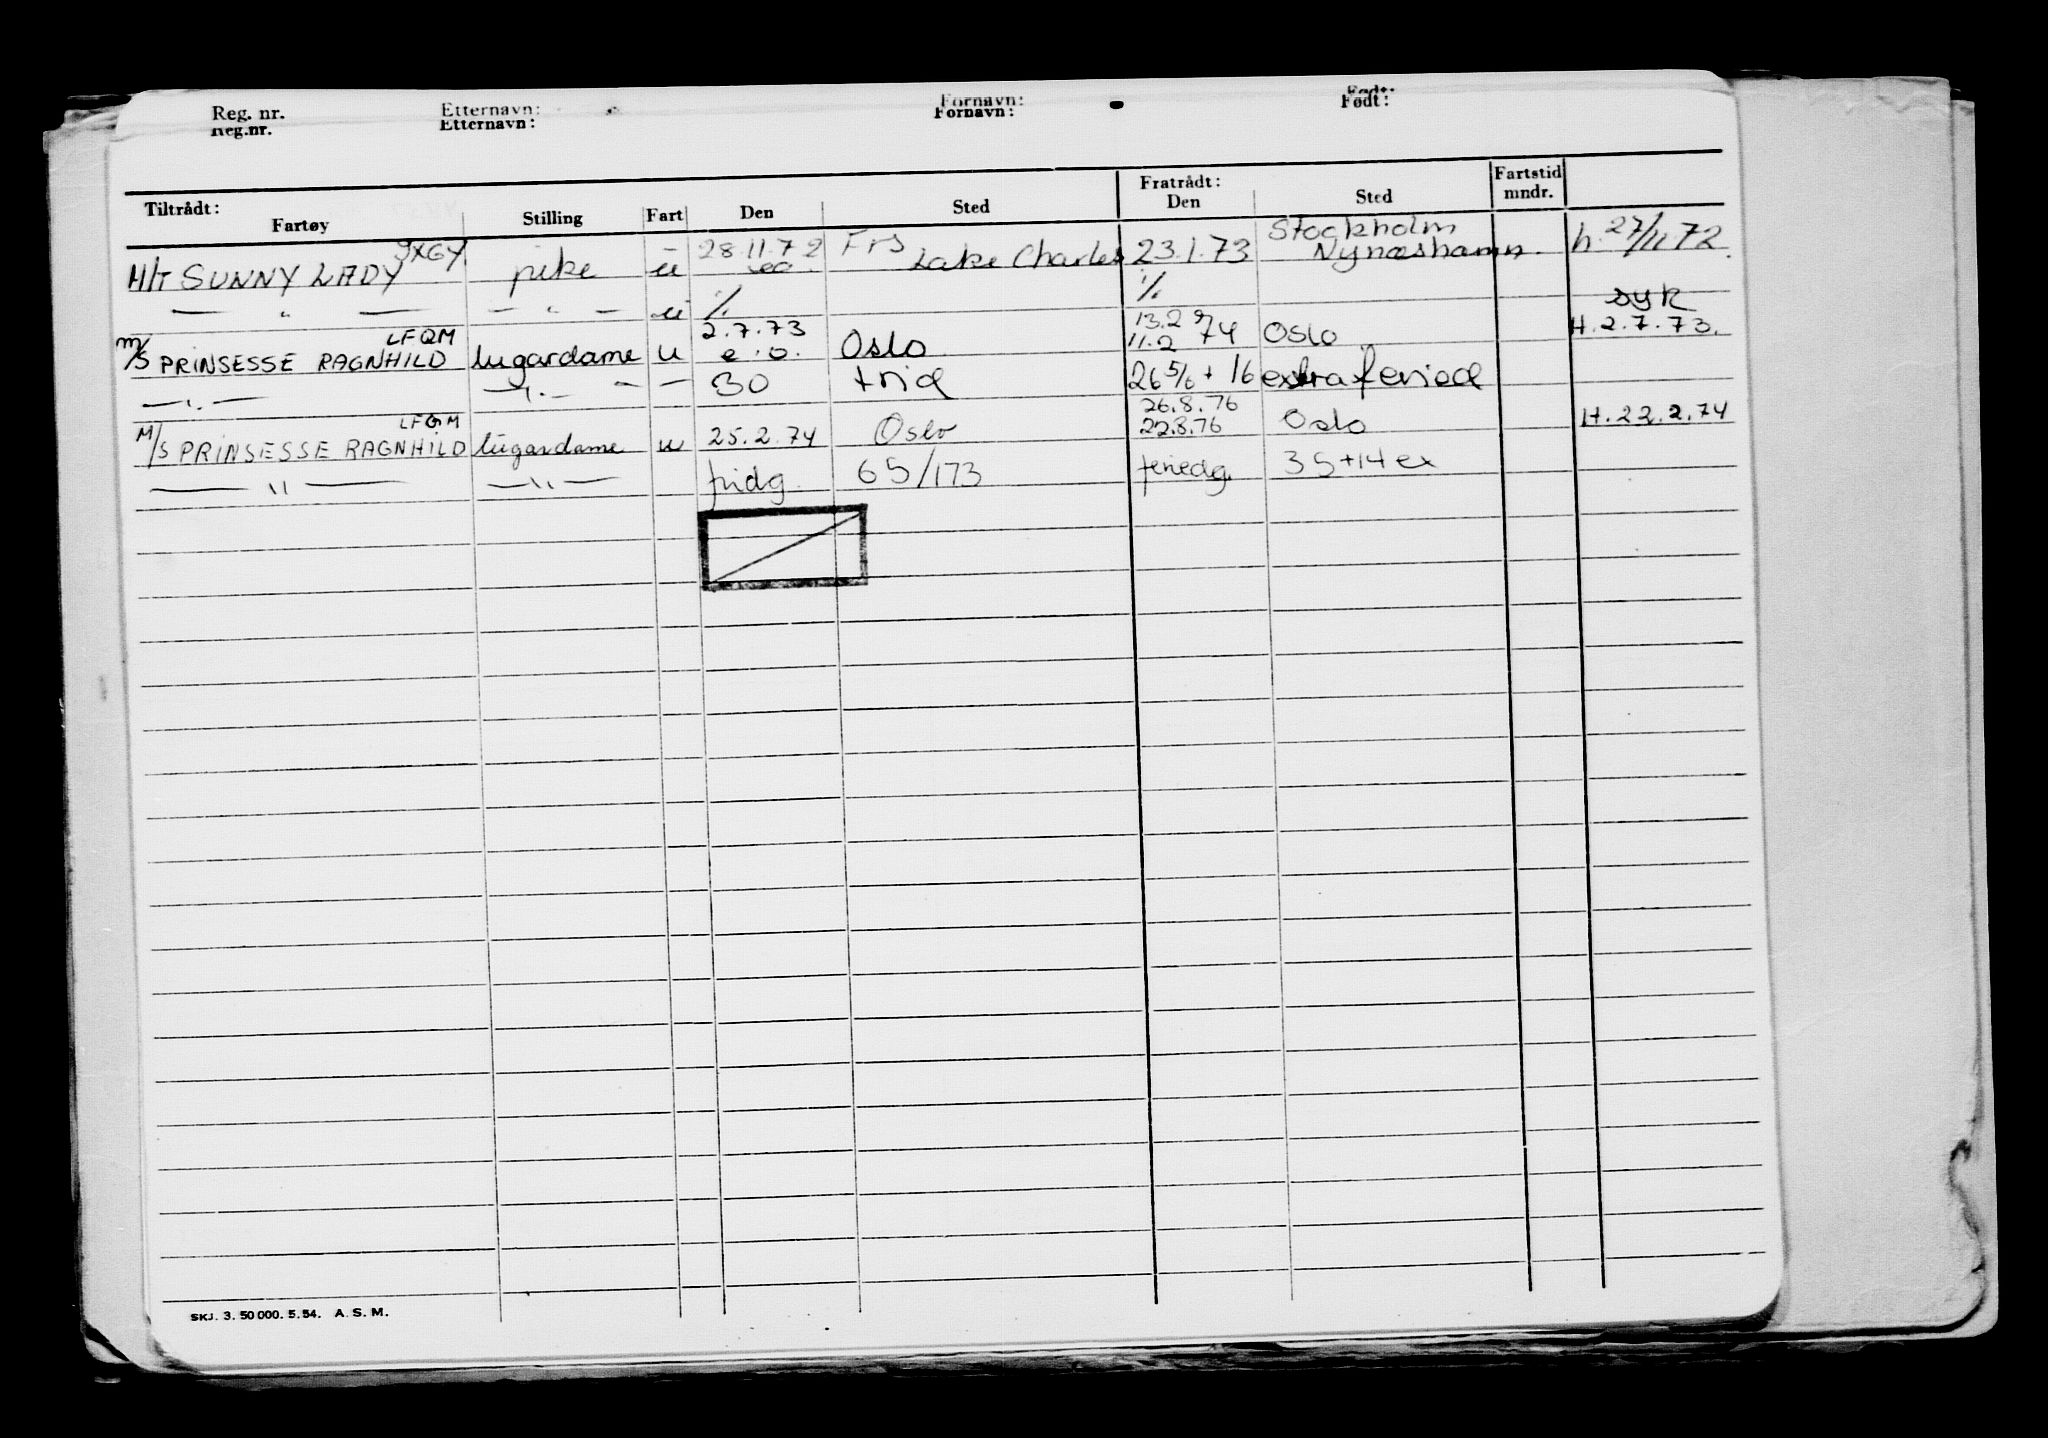 Reg. nr. Etternavn: Fornavn: Født:
Reg.nr. Etternavn: Fornavn: Født:
Tiltrådt: Fratrådt: Fartstid
Fartøy Stilling Fart Den Sted Den Sted mndr.
28.11.72 Frs Stockholm
M/T SUNNY LADY pike u Lake Charles 23.1.73 Nynæshamn. h. 27/11.72.
— " — — " — u % % syk
LFQM 2.7.73 13.2 H. 2.7.73.
m/s PRINSESSE RAGNHILD lugardame u e.o. Oslo 11.2 74 Oslo
— " — — " — — 30 trid 26 5/6 + 16 extra feried
LFQM 26.8.76
M/S PRINSESSE RAGNHILD lugardame u 25.2.74 Oslo 22.8.76 Oslo H. 22.2.74
— " — — " — fridg. 65/173 feriedg. 35+14 ex
SKJ. 3. 50 000. 5. 54. A. S. M.